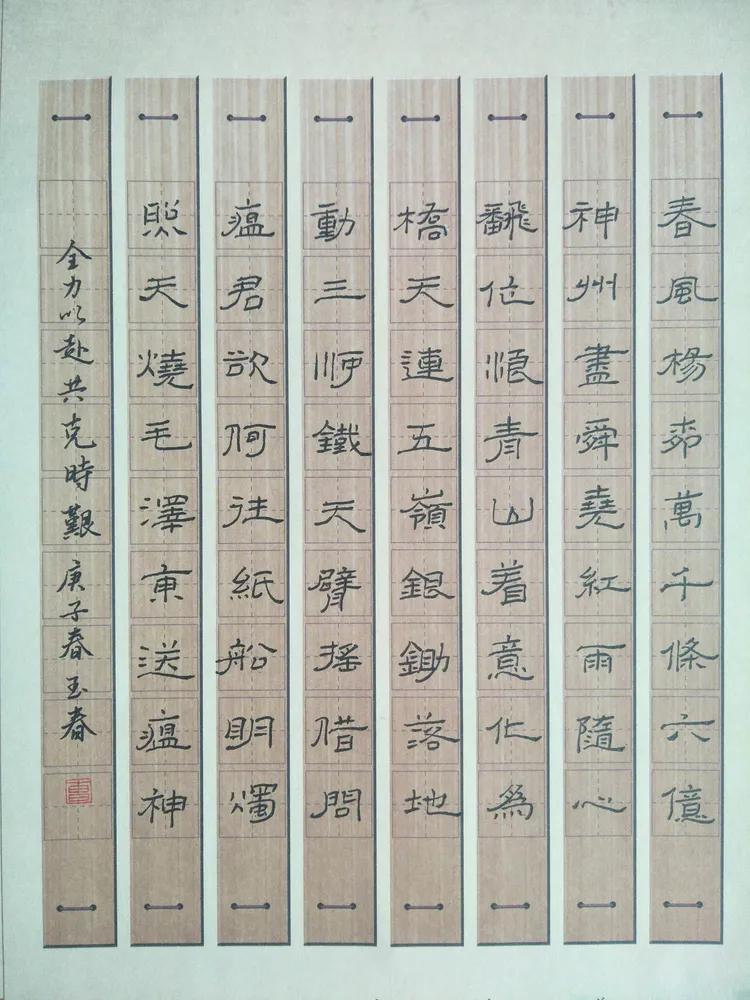 春風楊柳萬千條六億
神州盡舜堯紅雨隨心
飜作浪青山着意化為
橋天連五嶺銀鋤落地
動三河鐵天臂搖借問
瘟君欲何往紙船明燭
照天燒毛澤東送瘟神
全力以赴共克時艱庚子春玉春